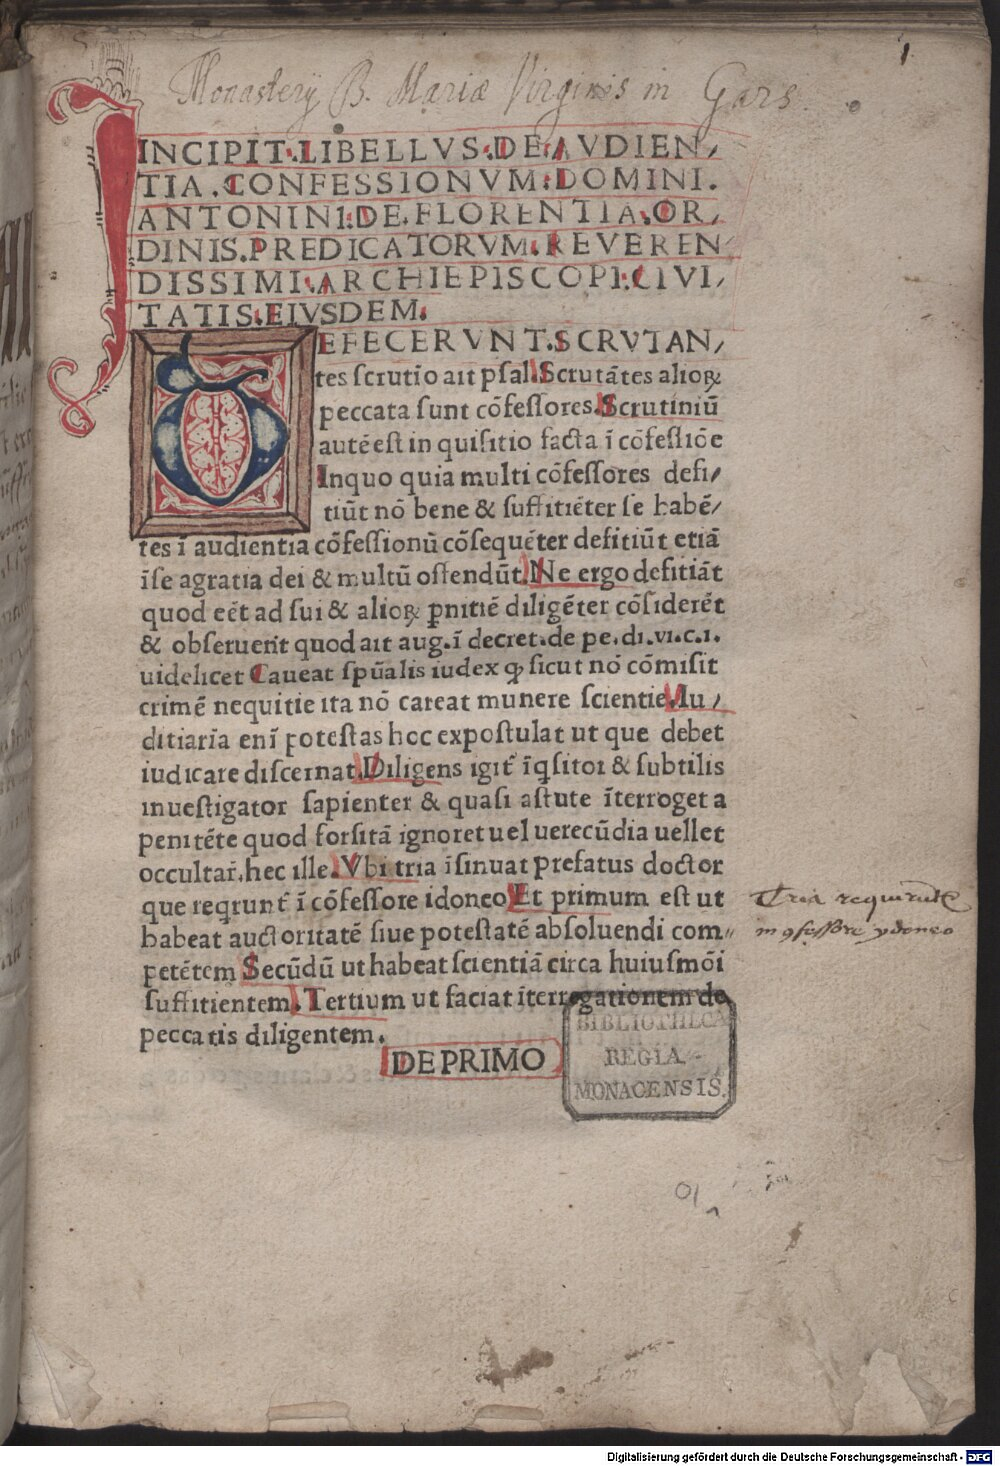 1
Monasterij B. Mariæ Virginis in Gars.
INCIPIT.LIBELLVS.DE.AVDIEN/
TIA.CONFESSIONVM:DOMINI.
ANTONINI:DE.FLORENTIA.OR/
DINIS.PREDICATORVM.REVEREN
DISSIMI.ARCHIEPISCOPI:CIVI/
TATIS.EIVSDEM.
DEFECERVNT.SCRVTAN/
tes scrutio ait psal.Scrutātes alioꝝ
peccata sunt cōfessores.Scrutiniū
autē est in quisitio facta ī cōfessiōe
Inquo quia multi cōfessores defi/
tiūt nō bene & suffitiēter se habē/
tes ī audientia cōfessionū cōsequēter defitiūt etiā
īse agratia dei & multū offendūt.Ne ergo defitiāt
quod eēt ad sui & alioꝝ pnitiē diligēter cōsiderēt
& obseruerit quod ait aug.ī decret.de pe.di.vi.c.i.
uidelicet Caueat spūalis iudex ꝙ sicut nō cōmisit
crimē nequitie ita nō careat munere scientie.Iu/
ditiaria enī potestas hoc expostulat ut que debet
iudicare discernat.Diligens igit̄ īqsitor & subtilis
inuestigator sapienter & quasi astute īterroget a
penitēte quod forsitā ignoret uel uerecūdia uellet
occultar̄.hec ille.Vbi tria īsinuat prefatus doctor
que reqrunt̄ ī cōfessore idoneo Et primum est ut
habeat auctoritatē siue potestatē absoluendi com//
petētem Secūdū ut habeat scientiā circa huiusmōi
suffitientem.Tertium ut faciat īterrogationem de
peccatis diligentem.
DE PRIMO
Tria requirunt̄
in ꝯfessore ydoneo
BIBLIOTHECA
REGIA
MONACENSIS.
Digitalisierung gefördert durch die Deutsche Forschungsgemeinschaft - DFG